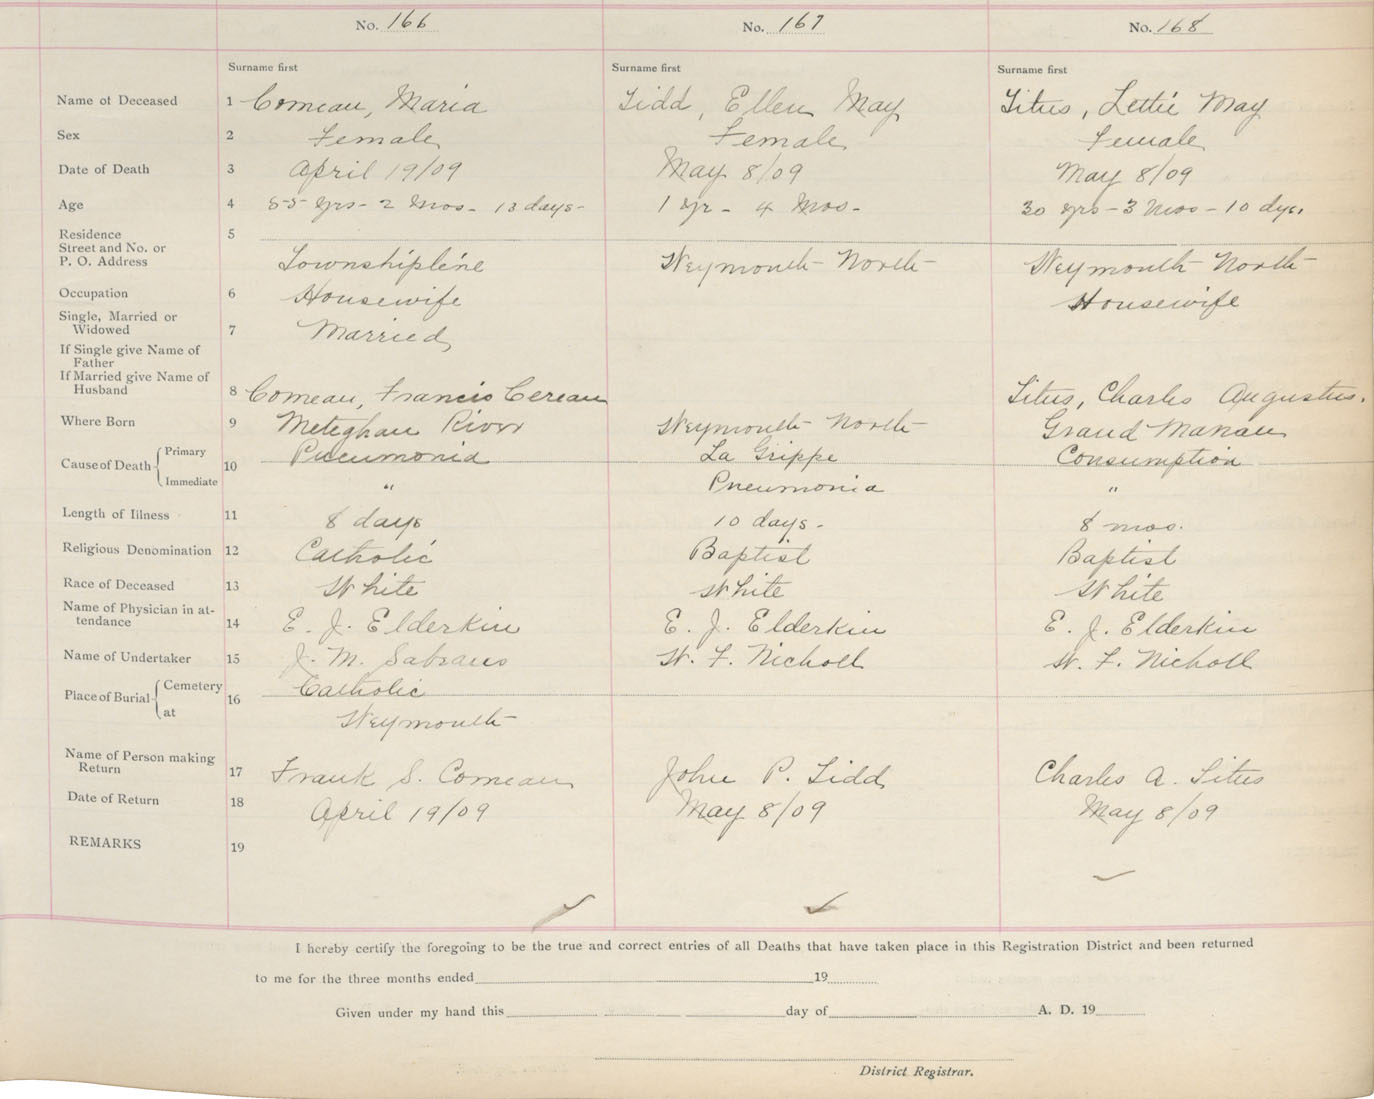 No. 166 No. 167 No. 168
Surname first Surname first Surname first
Name of Deceased 1 Comeau, Maria Tidd, Ellen May Titus, Lettie May
Sex 2 Female Female Female
Date of Death 3 April 19/09 May 8/09 May 8/09
Age 4 55 yrs- 2 mos- 13 days- 1 yr- 4 mos- 30 yrs-3 mos-10 dys.
Residence 5
Street and No. or
P. O. Address Townshipline Weymouth North Weymouth North
Occupation 6 Housewife Housewife
Single, Married or
Widowed 7 Married
If Single give Name of
Father
If Married give Name of
Husband 8 Comeau, Francis Titus, Charles Augustus.
Where Born 9 Meteghan River Weymouth North Grand Manan
Cause of Death Primary 10 Pneumonia La Grippe Consumption
Immediate " Pneumonia "
Length of Illness 11 8 days 10 days- 8 mos.
Religious Denomination 12 Catholic Baptist Baptist
Race of Deceased 13 White White White
Name of Physician in at-
tendance 14 E. J. Elderkin E. J. Elderkin E. J. Elderkin
Name of Undertaker 15 J. M. W. F. Nicholl W. F. Nicholl
Place of Burial Cemetery 16 Catholic
at Weymouth
Name of Person making
Return 17 Frank S. Comeau John P. Tidd Charles A. Titus
Date of Return 18 April 19/09 May 8/09 May 8/09
REMARKS 19
I hereby certify the foregoing to be the true and correct entries of all Deaths that have taken place in this Registration District and been returned
to me for the three months ended 19
Given under my hand this day of A. D. 19
District Registrar.